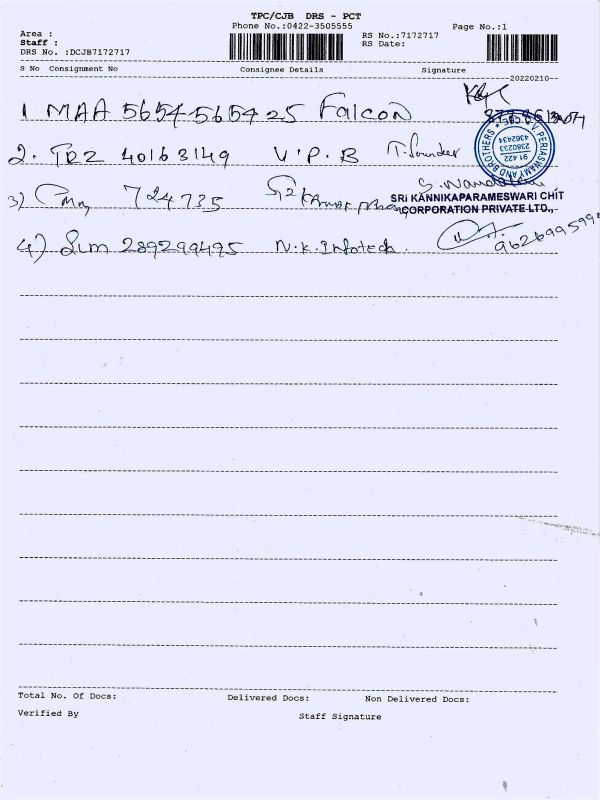 TPC/CJB DRS - PCT
Phone No.:0422-3505555 Page No.:1
Area : RS No.:7172717
Staff : RS Date:
DRS No. :DCJB7172717
S No Consignment No Consignee Details Signature
20220210
1 MAA 5654565425 Falcon
2. TRZ 40163149 V.P.B T. Sounder
V. PERIASWAMY AND BROTHERS
91 422
2380233
4362434
3) 724735
SRI KANNIKAPARAMESWARI CHIT
CORPORATION PRIVATE LTD.,
4) Slm 289299495 N.K. Infotech.
Total No. Of Docs: Delivered Docs: Non Delivered Docs:
Verified By Staff Signature